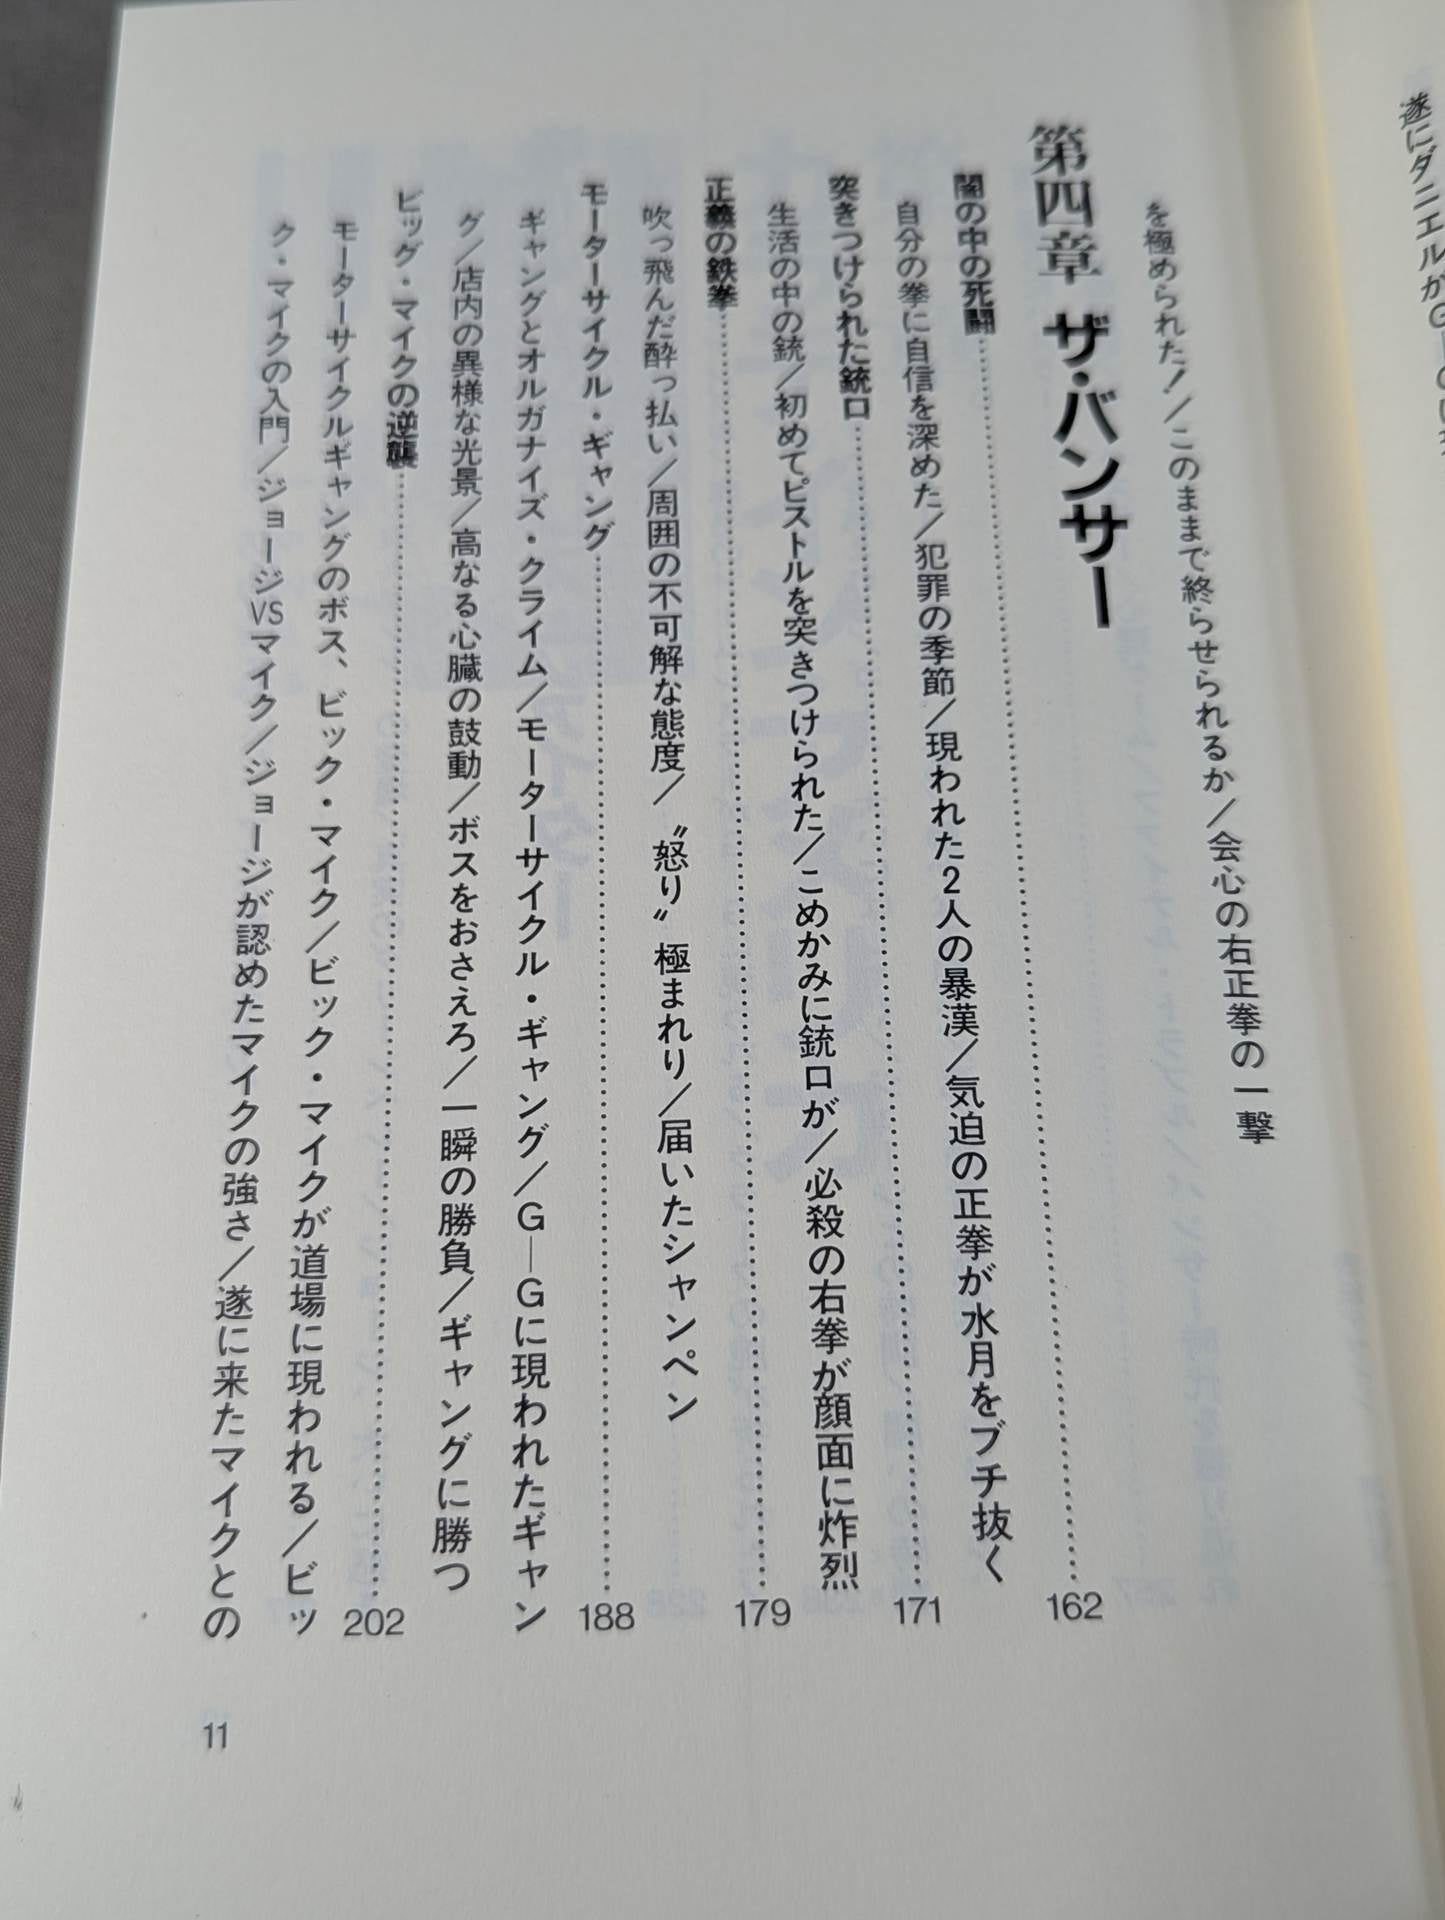 遂にダニエルが
を極められた！／このままで終らせられるか／会心の右正拳の一撃
第四章 ザ・バンサー
闇の中の死闘……162
自分の拳に自信を深めた／犯罪の季節／現われた2人の暴漢／気迫の正拳が水月をブチ抜く
突きつけられた銃口……171
生活の中の銃／初めてピストルを突きつけられた／こめかみに銃口が／必殺の右拳が顔面に炸烈
正義の鉄拳……179
吹っ飛んだ酔っ払い／周囲の不可解な態度／〝怒り〟極まれり／届いたシャンペン
モーターサイクル・ギャング……188
ギャングとオルガナイズ・クライム／モーターサイクル・ギャング／G―Gに現われたギャン
グ／店内の異様な光景／高なる心臓の鼓動／ボスをおさえろ／一瞬の勝負／ギャングに勝つ
ビッグ・マイクの逆襲……202
モーターサイクルギャングのボス、ビック・マイク／ビック・マイクが道場に現われる／ビッ
ク・マイクの入門／ジョージVSマイク／ジョージが認めたマイクの強さ／遂に来たマイクとの
11